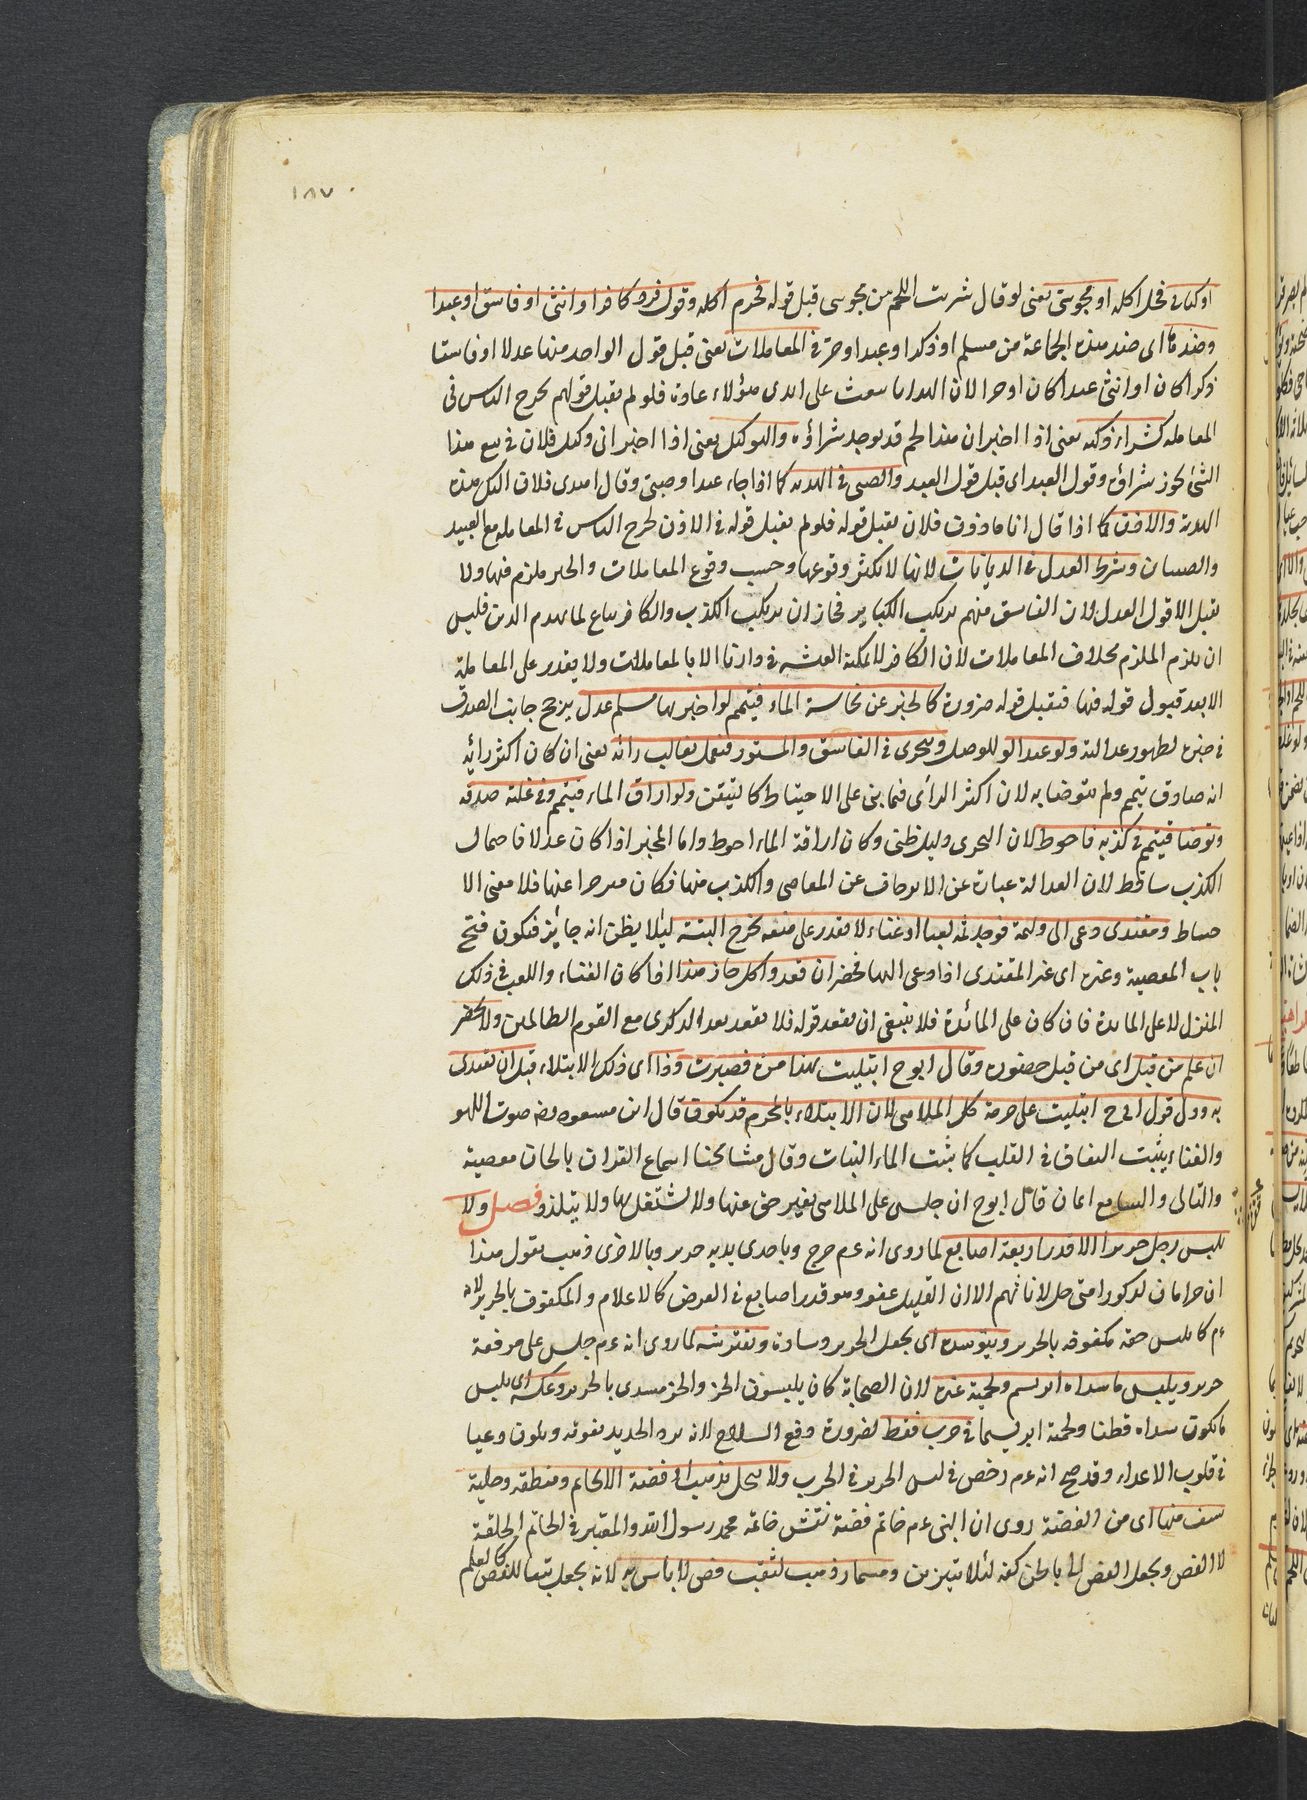 ١٨٧
او كتابى فحل اكله او مجوسى يعنى لو قال شريت اللحم من مجوسى قبل قوله فحرم اكله وقول فرد كافرا وانثى او فاسق او عبدا
وضدها اى ضد هذه الجماعة من مسلم او ذكرا وعبدا وحرة فى المعاملات يعنى قبل قول الواحد منها عدلا او فاسقا
ذكرا كان او انثى عبدا كان او حرا لان الهدايا يبعث على ايدى هؤلاء عادة فلو لم يقبل قولهم يحرج الناس فى
المعاملة كشراء ذكر يعنى اذا اخبر ان هذا لحم قد يوجد شراؤه والتوكيل يعنى اذا اخبر انى وكيل فلان فى بيع هذا
الشئ يجوز شراؤه وقول العبد اى قبل قول العبد والصبى فى الهدية كما اذا جاء عبد او صبى وقال اهدى فلان اليك هذه
الهدية والاذن كما اذا قال انا ماذون فلان يقبل قوله فلو لم يقبل قوله فى الاذن لحرج الناس فى المعاملة مع العبيد
والصبيان وشرط العدل فى الديانات لانها لا يكثر وقوعها وحسب وقوع المعاملات والخبر ملزم فيها ولا
يقبل الا قول العدل لان الفاسق منهم يرتكب الكبائر فجاز ان يرتكب الكذب والكافر يباع لما يهدم الدين فليس
ان يلزم الملزم بخلاف المعاملات لان الكافر لا يمكنه العيش فى دارنا الا بالمعاملات ولا يقدر على المعاملة
الا بعد قبول قوله فيها فيقبل قوله ضرورة كالخبر عن نجاسة الماء فيتيمم لو اخبر بها مسلم عدل يرجح جانب الصدق
فى خبره لظهور عدالته ولو عبدا لو للوصل ويتحرى فى الفاسق والمستور فيعمل بغالب رائه يعنى ان كان اكثر رأيه
انه صادق تيمم ولم يتوضا به لان اكثر الرأى فيما بنى على الاحتياط كاليقين ولو اراق الماء فيتيمم فى غلبة صدقه
وتوضا فيتيمم فى كذبه فاحوط لان التحرى دليل ظنى وكان اراقة الماء احوط واما المخبر اذا كان عدلا فاحتمال
الكذب ساقط لان العدالة عبارة عن الانزجار عن المعاصى والكذب منها فكان منزجرا عنها فلا معنى الا
حتياط ومقتدى دعى الى وليمة فوجد ثمه لعبا او غناء لا يقدر على منعه يخرج البتة لئلا يظن انه جائز فيكون فتح
باب المعصية وغيره اى غير المقتدى اذا دعى اليها فحضر ان قعد واكل جاز هذا اذا كان الغناء واللعب فى ذلك
المنزل لا على المائدة فان كان على المائدة فلا ينبغى ان يقعد قوله فلا تقعد بعد الذكرى مع القوم الظالمين ولا يحضر
ان علم من قبل اى من قبل حضوره وقال ابو ح ابتليت بهذا مرة فصبرت وذا اى ذلك الابتلاء قبل ان يقتدى
به ودل قول ابى ح ابتليت على حرمة كل الملاهى لان الابتلاء بالمحرم قد يكون قال ابن مسعود رضه صوت اللهو
والغناء ينبت النفاق فى القلب كما ينبت الماء النبات وقال مشايخنا استماع القران بالحان معصية
والتالى والسامع اثمان قال ابو ح ان جلس على الملاهى يغير حق عنها ولا يشتغل بها ولا يتلذذ فصل ولا
يلبس رجل حريرا الا قدر اربعة اصابع لما روى انه عم خرج وباحدى يديه حرير وبالاخرى ذهب يقول هذا
ان حرامان لذكور امتى حل لاناثهم الا ان القليل عفو وهو قدر اصابع فى العرض كالاعلام والمكفوف بالحرير لانه
عم كان يلبس جبة مكفوفة بالحرير ويتوسده اى يجعل الحرير وسادة ويفترشه لما روى انه عم جلس على مرفقة
حرير ويلبس ما سداه ابريسم ولحمته غيره لان الصحابة كان يلبسون الخز والخز مسدى بالحرير وعكسه اى يلبس
ما يكون سداه قطنا ولحمته ابريسما فى حرب فقط لضرورة دفع السلاح لانه يرد الحديد بقوته ويكون رعبا
فى قلوب الاعداء وقد صح انه عم رخص فى لبس الحرير فى الحرب ولا يتحلى بذهب او فضة الا بخاتم ومنطقة وحلية
سيف منها اى من الفضة روى ان النبى عم خاتم فضة نقش خاتمه محمد رسول الله والمعتبر فى الخاتم الحلقة
لا الفص ويجعل الفص الى باطن كفه لئلا يتزين ومسمار ذهب لثقب فص لا بأس به لانه يجعل تبعا للفص كالعلم